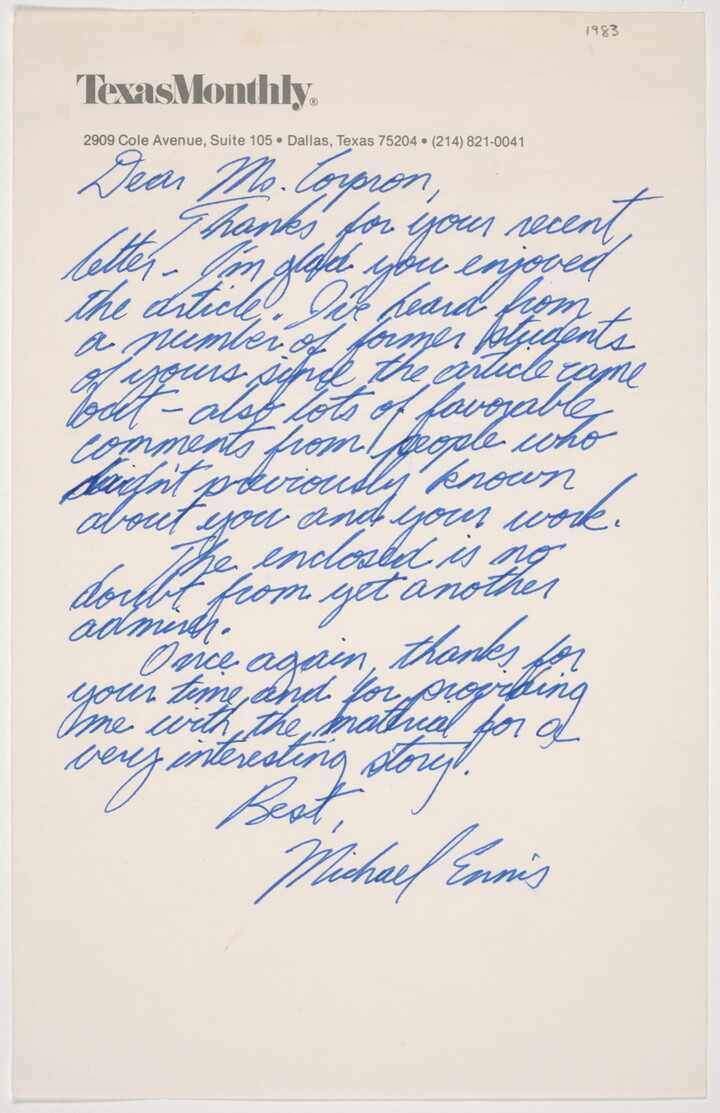 1983
TexasMonthly®
2909 Cole Avenue, Suite 105 • Dallas, Texas 75204 • (214) 821-0041
Dear Ms. Corpron,
Thanks for your recent
letter - I'm glad you enjoyed
the article. I've heard from
a number of former students
of yours since the article came
out - also lots of favorable
comments from people who
didn't previously known
about you and your work.
The enclosed is no
doubt from yet another
admirer.
Once again, thanks for
your time and for providing
me with the material for a
very interesting story.
Best,
Michael Ennis